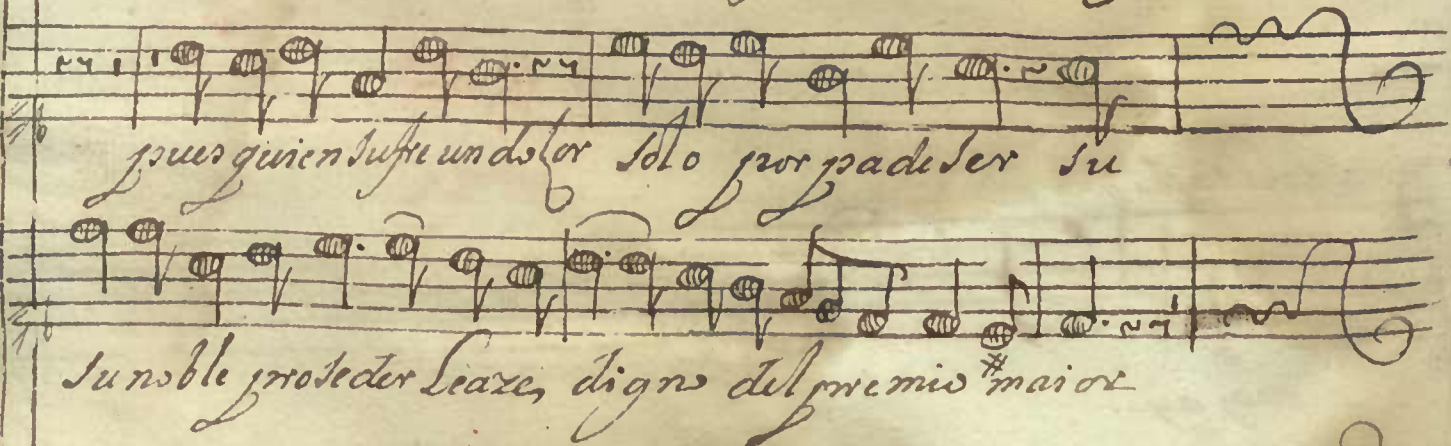 pues quien sufre un dolor solo por padeser su
su noble proseder leaze, digno del premio maior